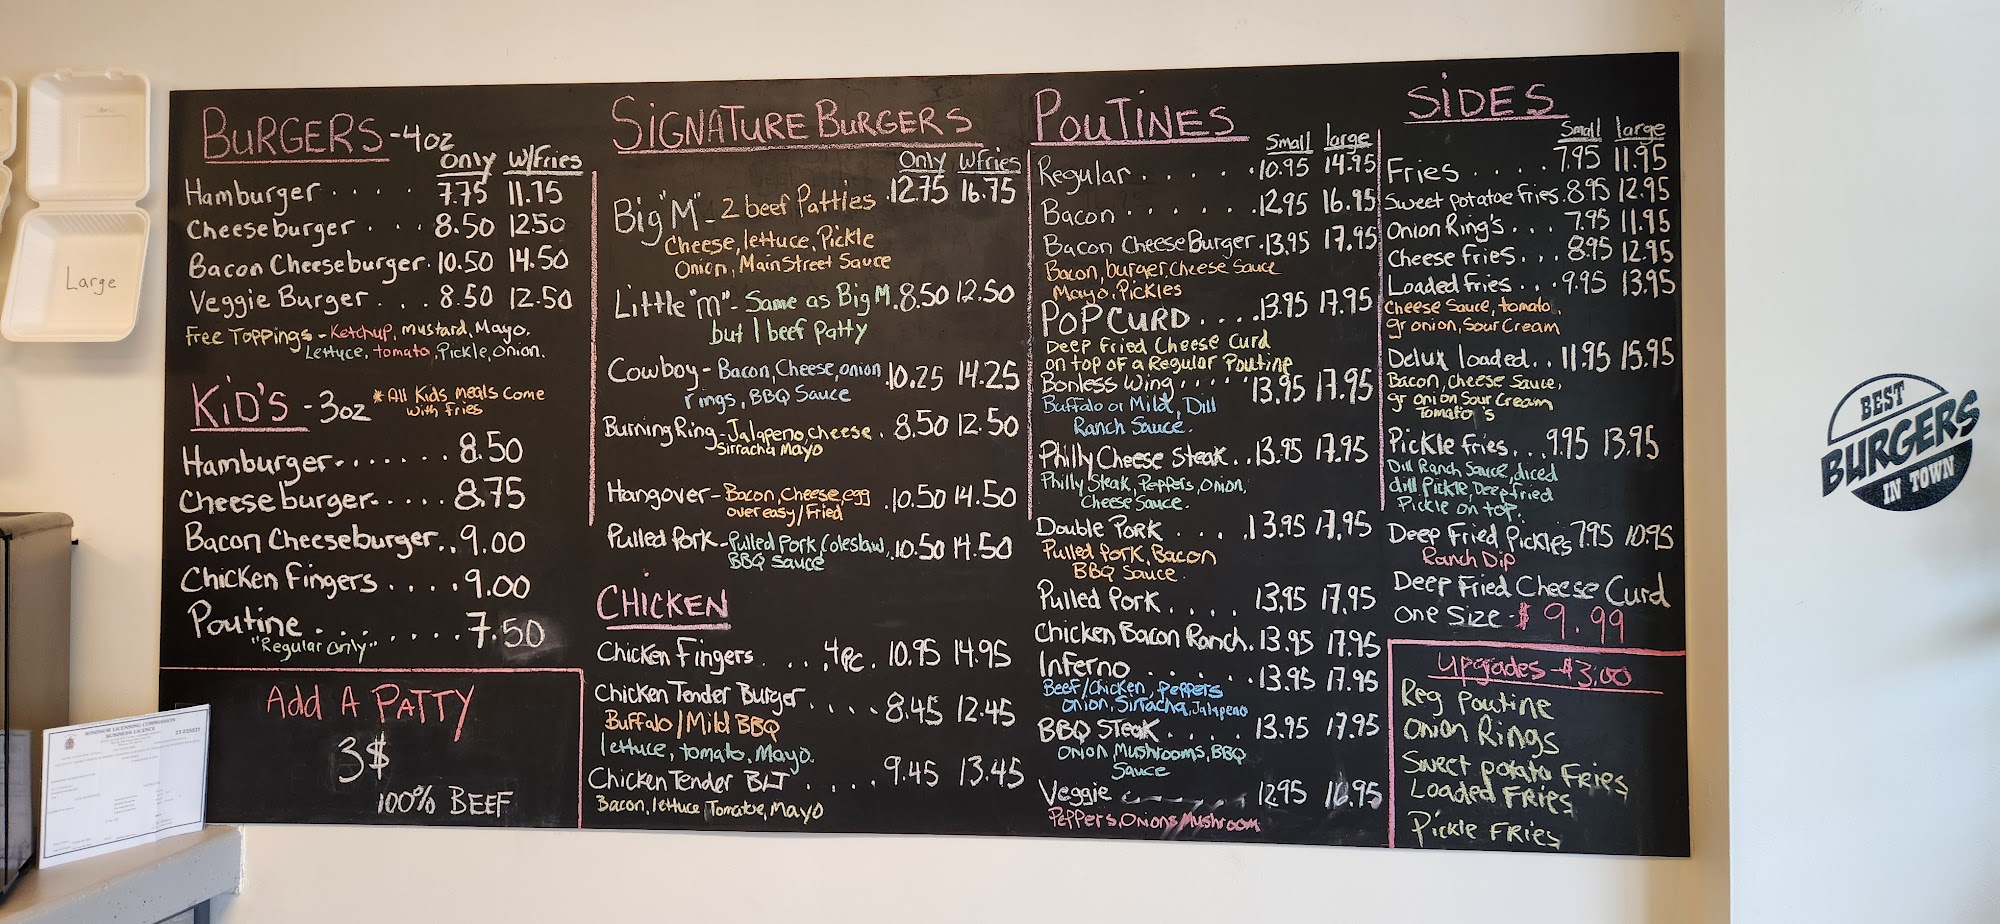 Large
BURGERS - 4oz
Only W/Fries
Hamburger . . . . 7.75 11.75
Cheeseburger . . . 8.50 12.50
Bacon Cheeseburger. 10.50 14.50
Veggie Burger . . . 8.50 12.50
Free Toppings - Ketchup, mustard, Mayo,
Lettuce, tomato, Pickle, Onion.
KiD'S - 3oz
*All Kids meals Come
with fries
Hamburger....... 8.50
Cheeseburger..... 8.75
Bacon Cheeseburger.. 9.00
Chicken Fingers . . . . 9.00
Poutine . . . . . . . . 7.50
"Regular only"
Add A PATTY
3$
100% BEEF
SiGNATURE BURGERS
Only W/Fries
Big "M" - 2 beef Patties . 12.75 16.75
Cheese, lettuce, Pickle
Onion, MainStreet Sauce
Little "M" - Same as Big M. 8.50 12.50
but 1 beef Patty
Cowboy - Bacon, Cheese, onion . 10.25 14.25
rings, BBQ Sauce
Burning Ring - Jalapeno, cheese . 8.50 12.50
Sirracha Mayo
Hangover - Bacon, cheese, egg . 10.50 14.50
over easy/Fried
Pulled Pork - Pulled Pork, Coleslaw, . 10.50 14.50
BBQ Sauce
CHICKEN
Chicken Fingers . . . . 4pc . 10.95 14.95
Chicken Tender Burger . . . . 8.45 12.45
Buffalo / Mild BBQ
lettuce, tomato, Mayo.
Chicken Tender BLT . . . . 9.45 13.45
Bacon, lettuce, Tomatoe, Mayo
POUTINES
Small large
Regular . . . . . . 10.95 14.95
Bacon . . . . . . . 12.95 16.95
Bacon Cheese Burger . 13.95 17.95
Bacon, burger, Cheese Sauce
Mayo, Pickles
POPCURD . . . . 13.95 17.95
Deep Fried Cheese Curd
on top of a Regular Poutine
Bonless Wing . . . . . 13.95 17.95
Buffalo or Mild, Dill
Ranch Sauce.
Philly Cheese Steak . . 13.95 17.95
Philly Steak, Peppers, Onion,
Cheese Sauce.
Double Pork . . . . 13.95 17.95
Pulled Pork, Bacon
BBQ Sauce.
Pulled Pork . . . . 13.95 17.95
Chicken Bacon Ranch. 13.95 17.95
Inferno . . . . . . 13.95 17.95
Beef/Chicken, peppers
Onion, Sirracha, Jalapeno
BBQ Steak . . . . 13.95 17.95
Onion Mushrooms, BBQ
Sauce
Veggie . . . . . . 12.95 16.95
Peppers, Onions Mushroom
SiDES
Small large
Fries . . . . 7.95 11.95
Sweet potatoe fries . 8.95 12.95
Onion Ring's . . . 7.95 11.95
Cheese fries . . . 8.95 12.95
Loaded fries . . . 9.95 13.95
Cheese Sauce, tomato,
gr onion, Sour Cream
Delux loaded . . 11.95 15.95
Bacon, Cheese Sauce,
gr onion Sour Cream
Tomato's
Pickle fries . . . 9.95 13.95
Dill Ranch Sauce, diced
dill Pickle, Deep fried
Pickle on top.
Deep Fried Pickles 7.95 10.95
Ranch Dip
Deep Fried Cheese Curd
One Size - $9.99
Upgades - $3.00
Reg Poutine
Onion Rings
Sweet Potato Fries
Loaded FRies
Pickle FRies
BEST
BURGERS
IN TOWN
WINDSOR LICENSING COMMISSION
BUSINESS LICENCE